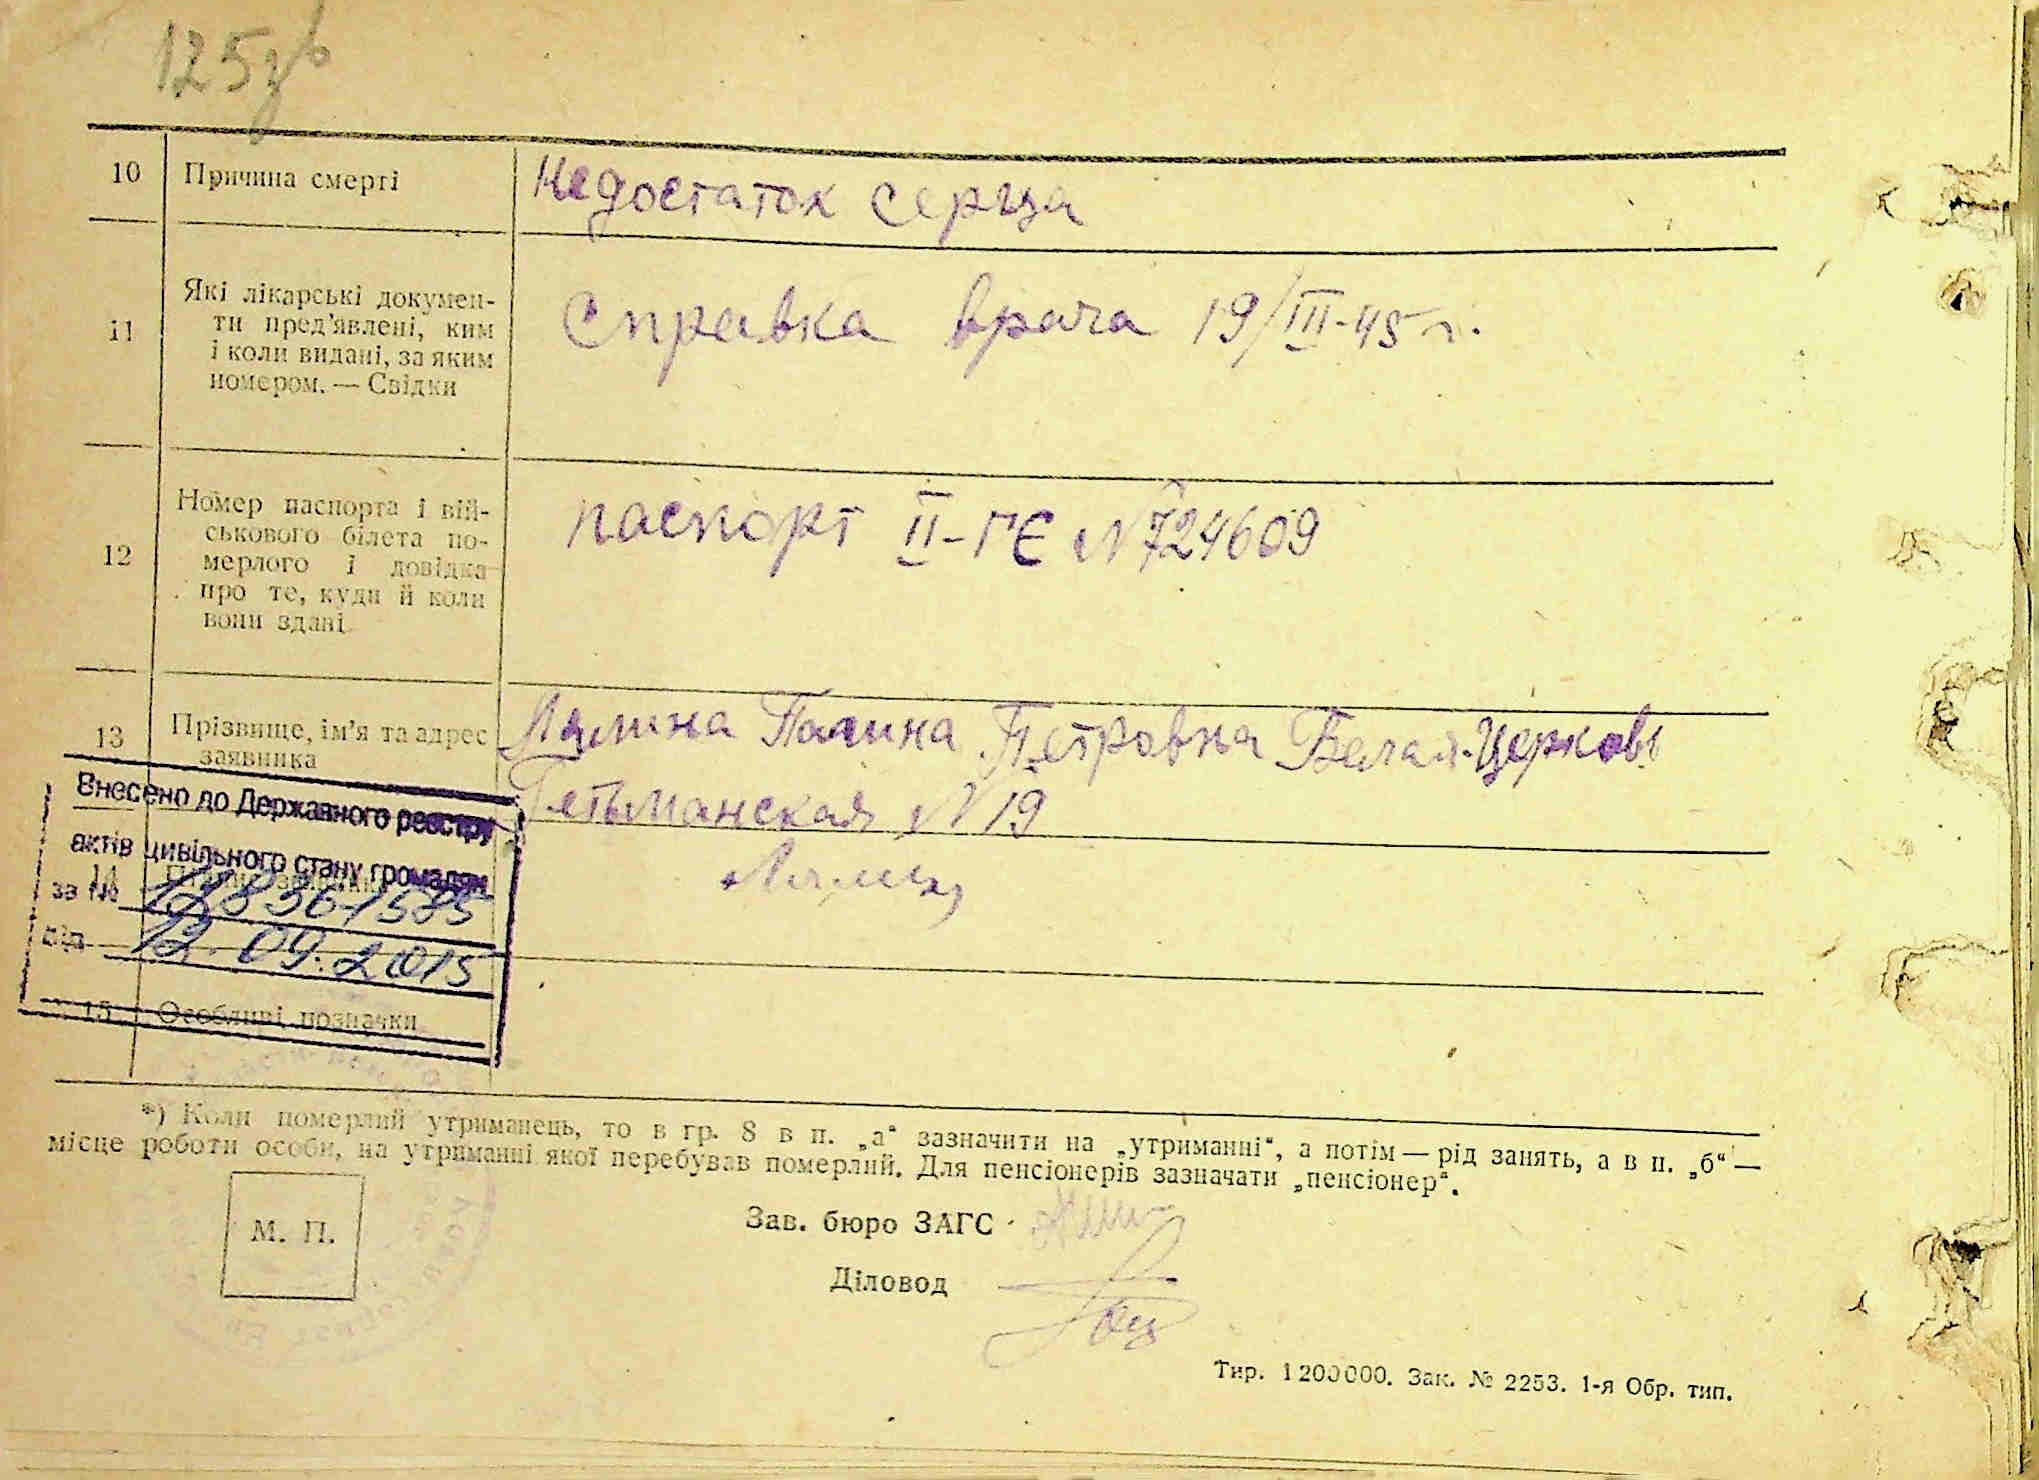 125зв
10 Причина смерті Недостаток серца
11 Які лікарські докумен-
ти пред'явлені, ким
і коли видані, за яким
номером. — Свідки
Справка врача 19/III-45 г.
12 Номер паспорта і вій-
ськового білета по-
мерлого і довідка
про те, куди й коли
вони здані
паспорт II-ГЄ № 724609
13 Прізвище, ім'я та адрес
заявника
Петровна Белая-Церковь
Гетьманская № 19
Внесено до Державного реєстру
актів цивільного стану громадян
за №
від 12.09.2015
14
15 Особливі позначки
*) Коли померлий утриманець, то в гр. 8 в п. „а“ зазначити на „утриманні“, а потім — рід занять, а в п. „б“ —
місце роботи особи, на утриманні якої перебував померлий. Для пенсіонерів зазначати „пенсіонер“.
М. П.
Зав. бюро ЗАГС
Діловод
Тир. 1200000. Зак. № 2253. 1-я Обр. тип.